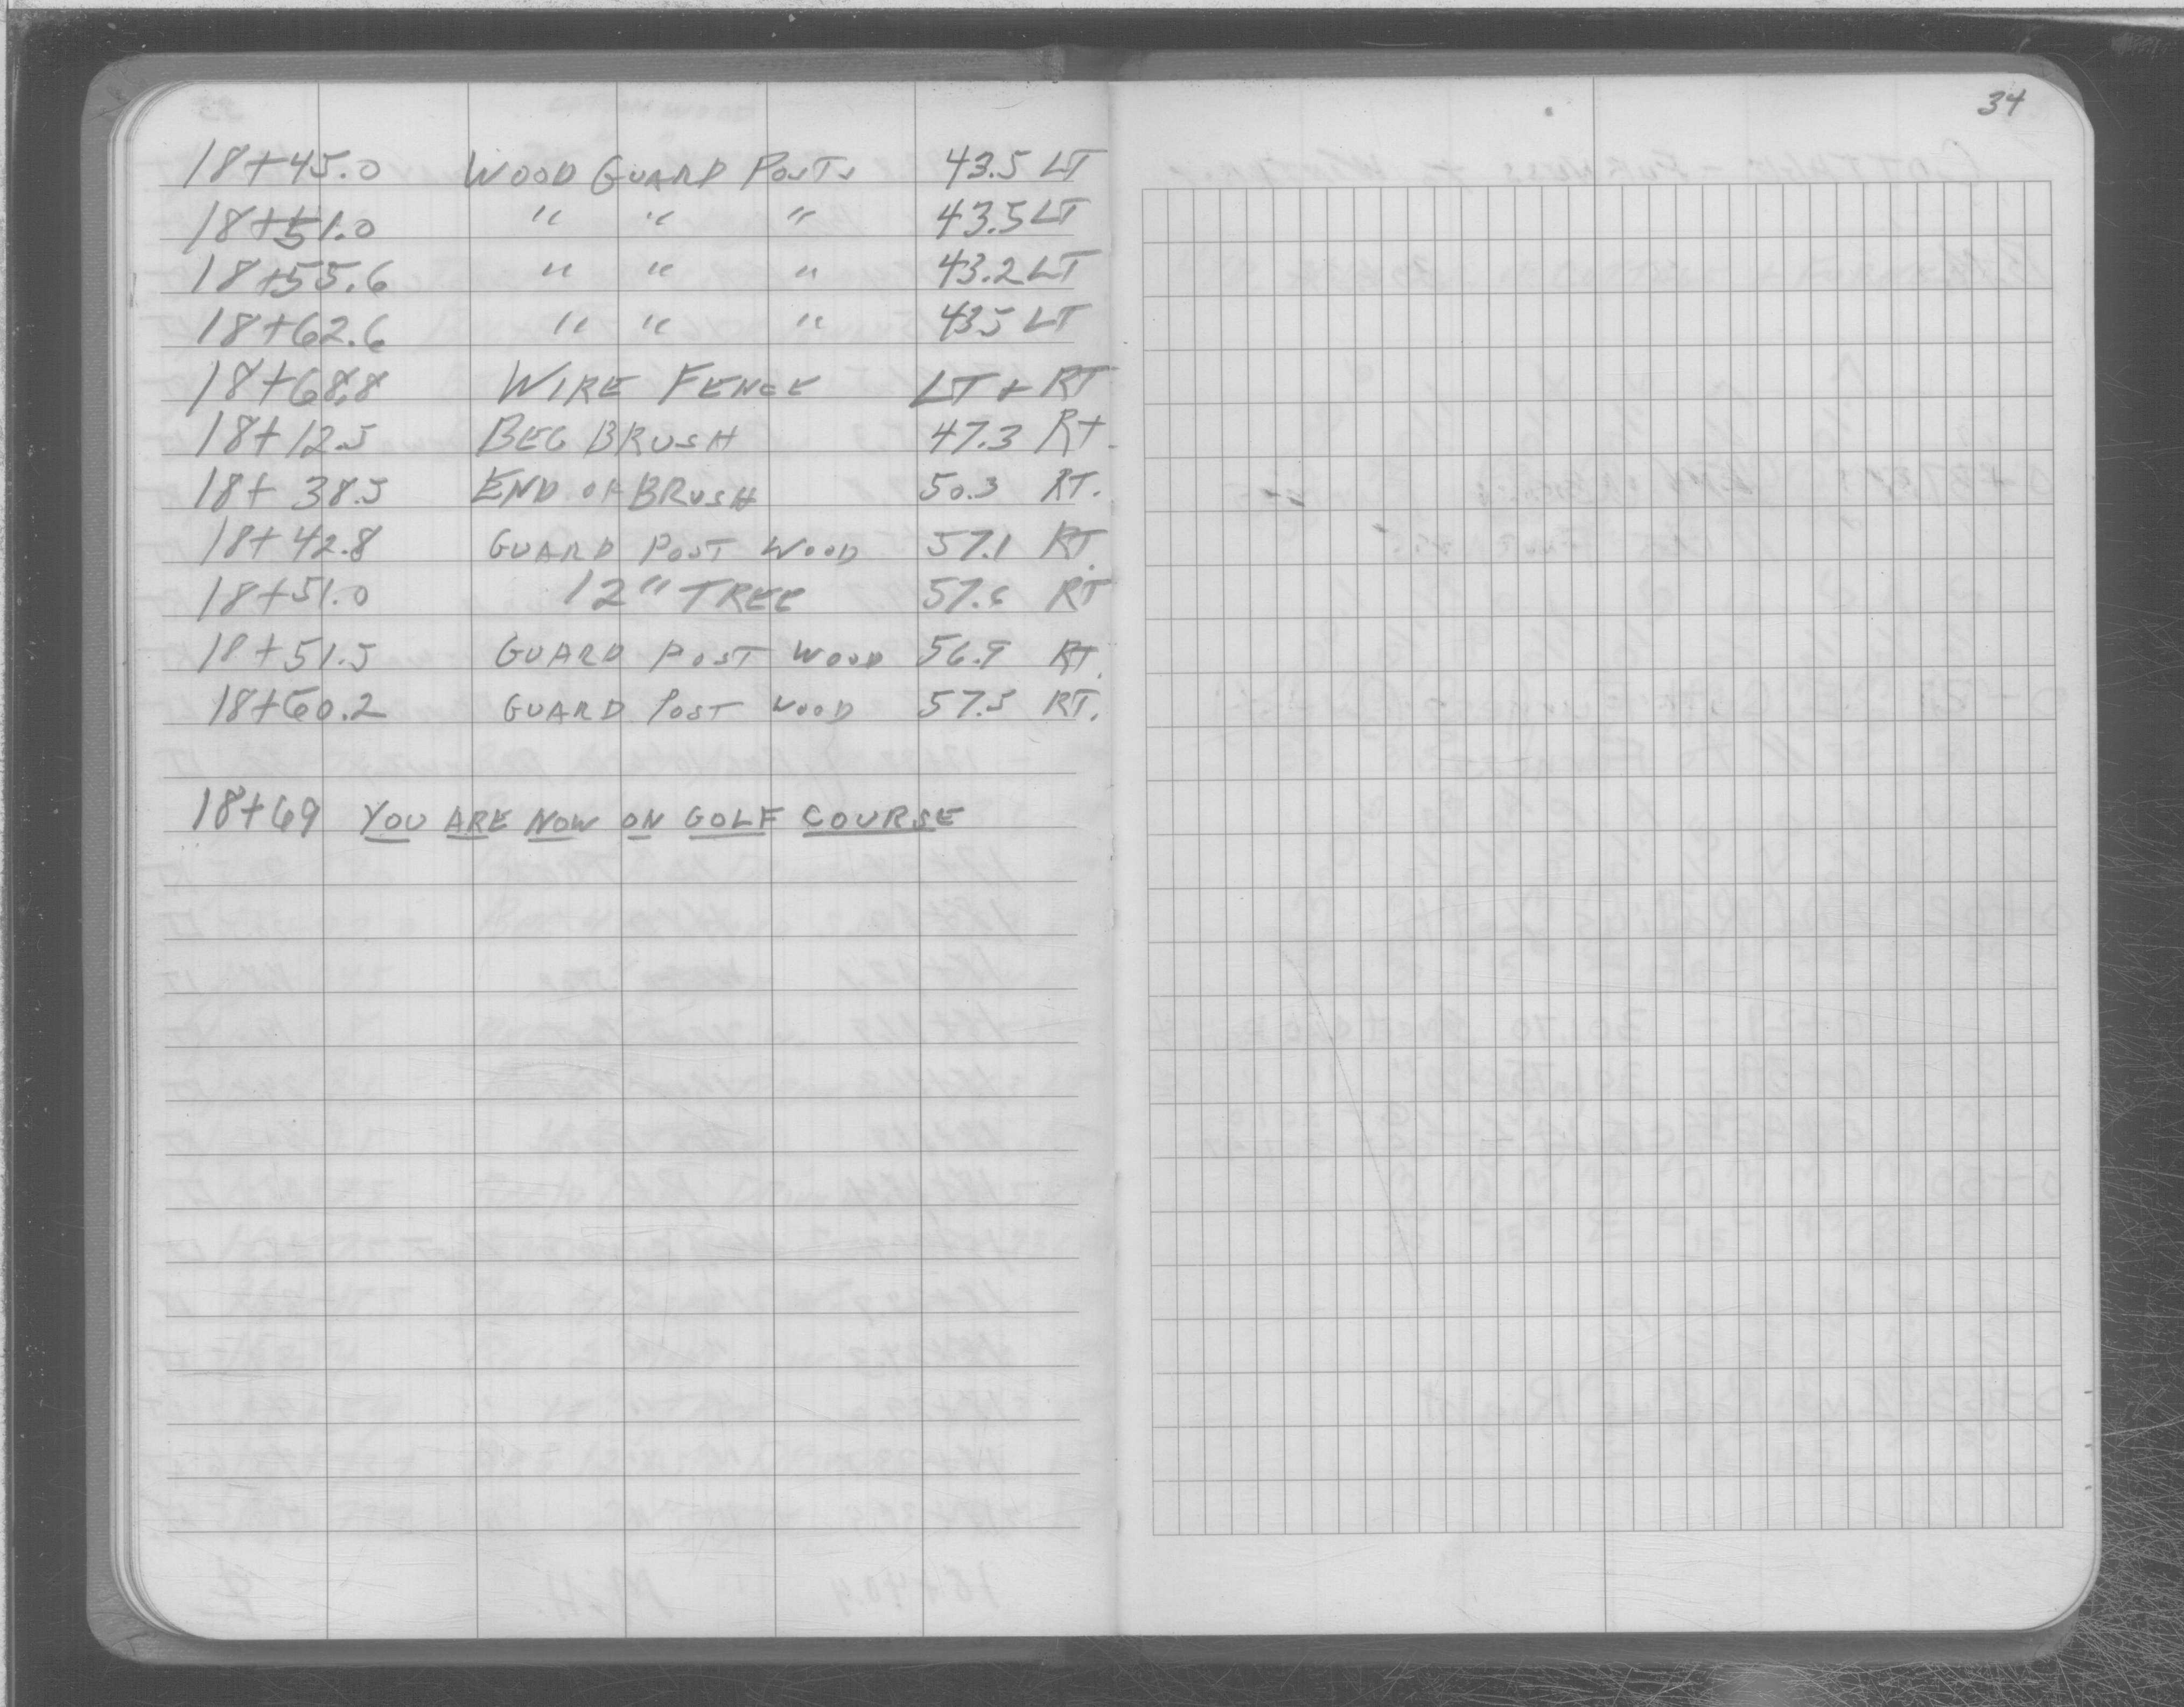 34
18+45.0 WOOD GUARD POSTS 43.5 LT
18+51.0 " " " 43.5 LT
18+55.6 " " " 43.2 LT
18+62.6 " " " 435 LT
18+68.8 WIRE FENCE LT + RT
18+12.5 BEG BRUSH 47.3 Rt.
18+38.5 END OF BRUSH 50.3 RT.
18+42.8 GUARD POST WOOD 57.1 RT.
18+51.0 12" TREE 57.6 RT
18+51.5 GUARD POST WOOD 56.9 RT.
18+60.2 GUARD POST WOOD 57.5 RT.
18+69 YOU ARE NOW ON GOLF COURSE